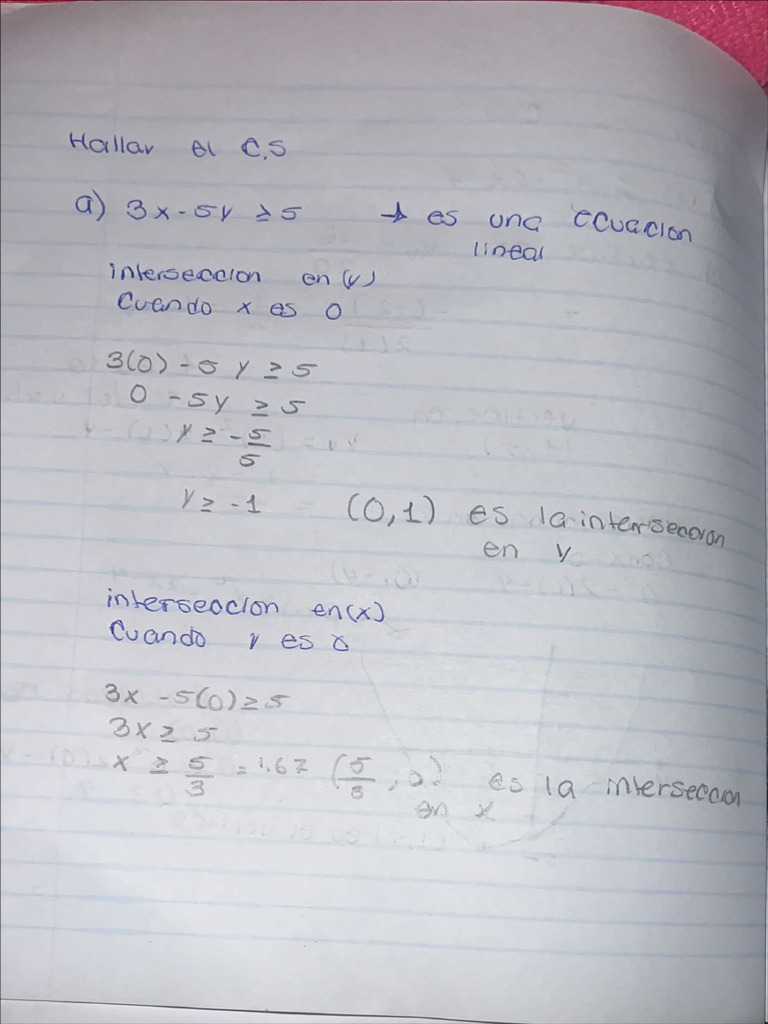 Hallar el C.S
a) 3x - 5y ≥ 5 → es una ecuacion
lineal
interseccion en (y)
Cuando x es 0
3(0) - 5 y ≥ 5
0 - 5y ≥ 5
y ≥ - 5/5
y ≥ -1 (0,1) es la interseccion
en y
interseccion en (x)
Cuando y es 0
3x - 5(0) ≥ 5
3x ≥ 5
x ≥ 5/3 = 1.67 (5/3, 0) es la interseccion
en x